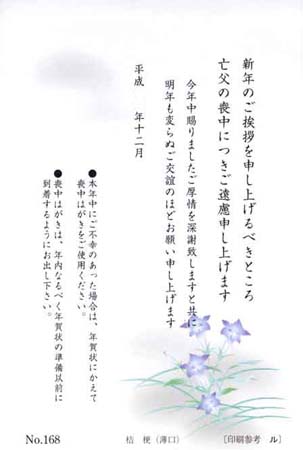 新年のご挨拶を申し上げるべきところ
亡父の喪中につきご遠慮申し上げます
今年中賜りましたご厚情を深謝致しますと共に
明年も変らぬご交誼のほどお願い申し上げます
平成　　年十二月
●本年中にご不幸のあった場合は、年賀状にかえて
喪中はがきをご使用ください。
●喪中はがきは、年内なるべく年賀状の準備以前に
到着するようにお出し下さい。
No.168
桔　梗（薄口）
［印刷参考　ル］